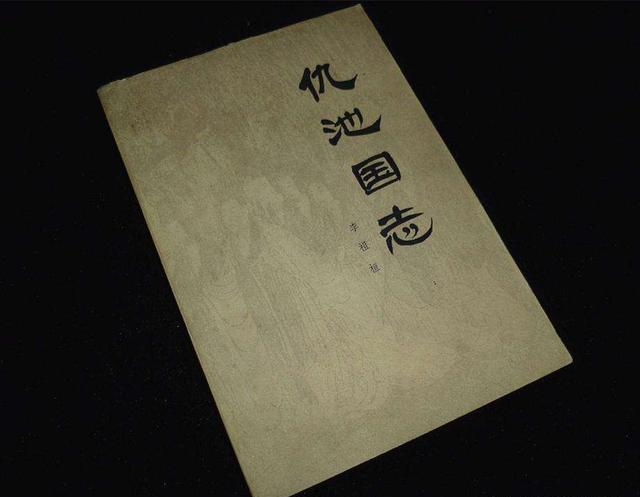 仇池国志
李祖桓